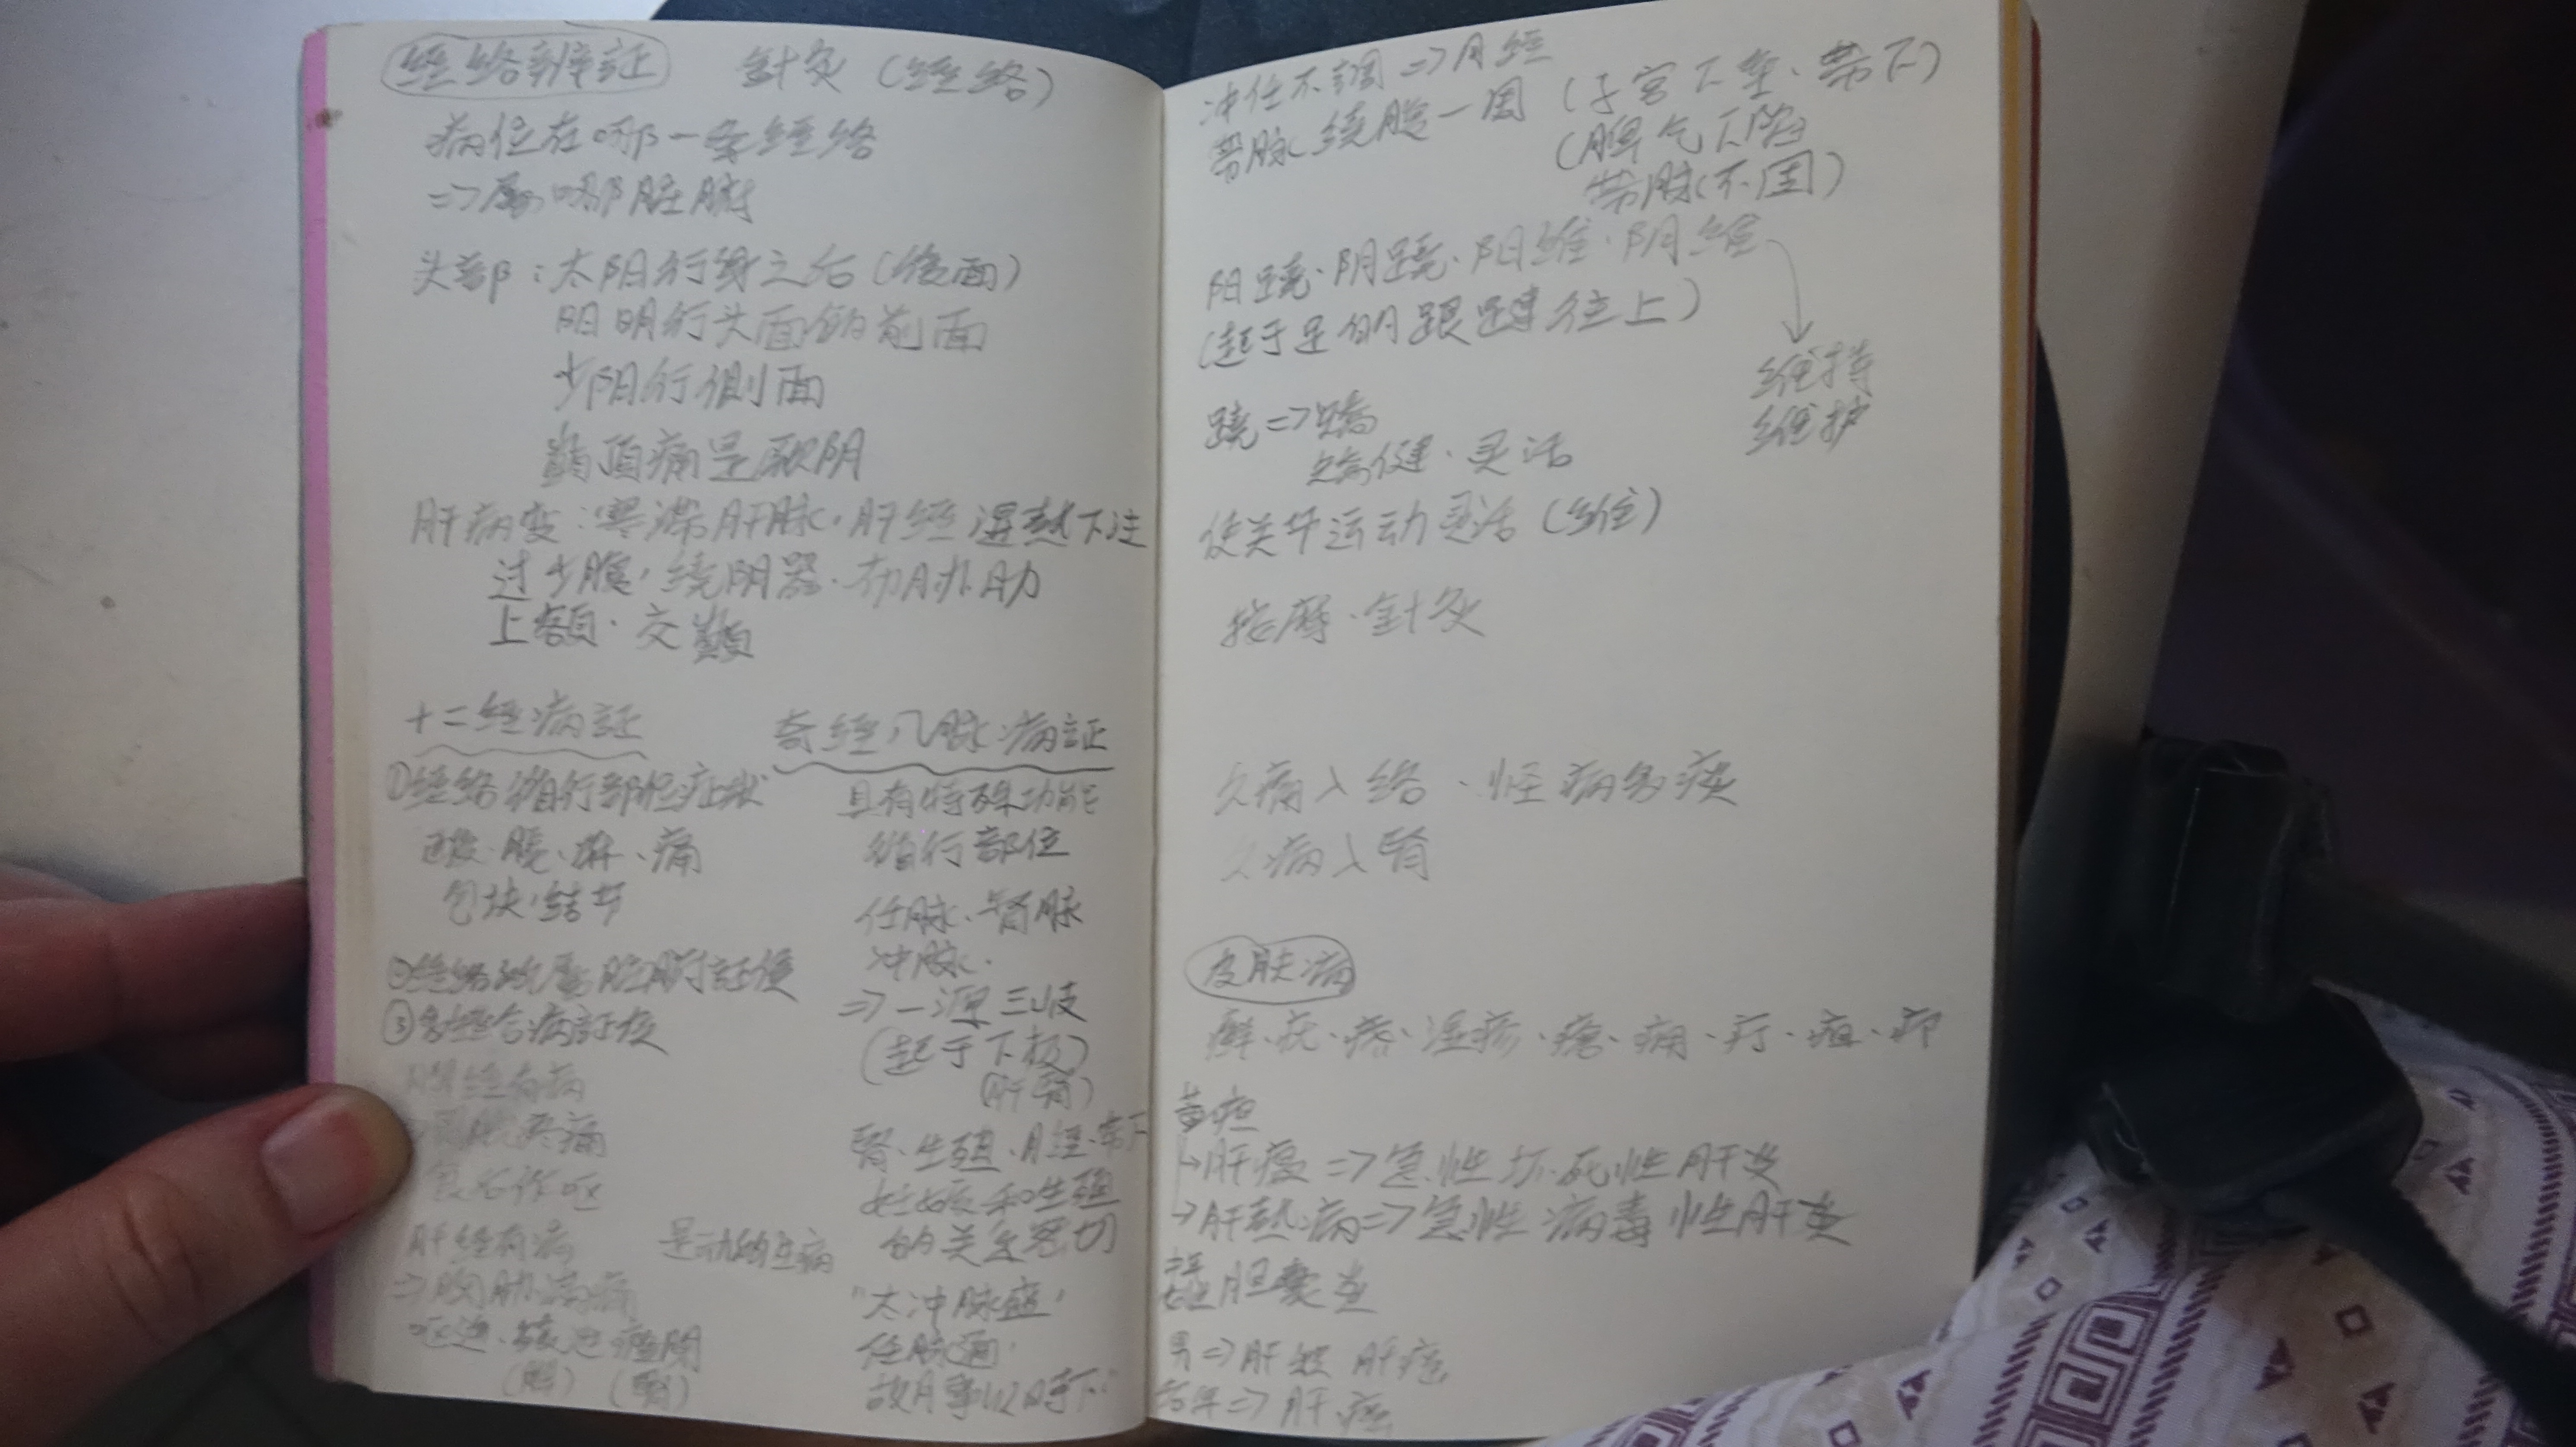 經络辨証　針灸（經络）
病位在哪一条經络
=>属哪脏腑
头部：太阳行身之后（後面）
阳明行头面的前面
少阳行侧面
巅顶痛是厥阴
肝病变：寒滞肝脉，肝經湿热下注
过少腹，绕阴器·布胁肋
上额·交巅
十二經病証
①經络循行部位症状
酸·脹·麻·痛
包块·结节
②經络所属脏腑証候
③多經合病証候
脾經有病
疼痛
食后作呕
肝經有病　是动的主病
=>胸胁满痛
呕逆
奇經八脉病証
具有特殊功能
循行部位
任脉·督脉
冲脉·
=>一源三岐
（起于下极）
（肝腎）
腎·生殖·月經·带下
妊娠和生殖
的关系密切
"太冲脉盛，
任脉通，
故月事以時下"
冲任不調=>月經
带脉绕腹一周（子宫下垂·带下）
（脾气下陷
带脉不固）
阳跷·阴跷·阳維·阴維
（起于足的跟往上）
維持
維护
跷=>蹻
矫健·灵活
使关节运动灵活（維）
按摩·針灸
久痛入络·怪病多痰
久病入腎
皮肤病
癣·疣·痣·湿疹·瘡·痈·疔·疽·疖
黄疸
→肝瘟=>急性坏死性肝炎
→肝热病=>急性病毒性肝炎
胆囊炎
男=>肝
=>肝